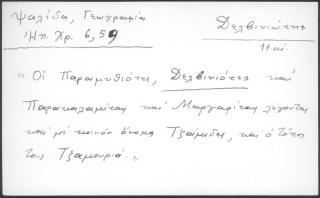 Ψαλίδα, Γεωγραφία
Ἠπ. Χρ. 6, 59
Δελβινιώτης
19 αἰ.
"Οἱ Παραμυθιότες, Δελβινιότες καὶ
Παρακαλαμίται καὶ Μαργαρίται λέγονται
καὶ μὲ κοινὸν ὄνομα Τζάμιδες, καὶ ὁ τόπος
τους Τζαμουριά."